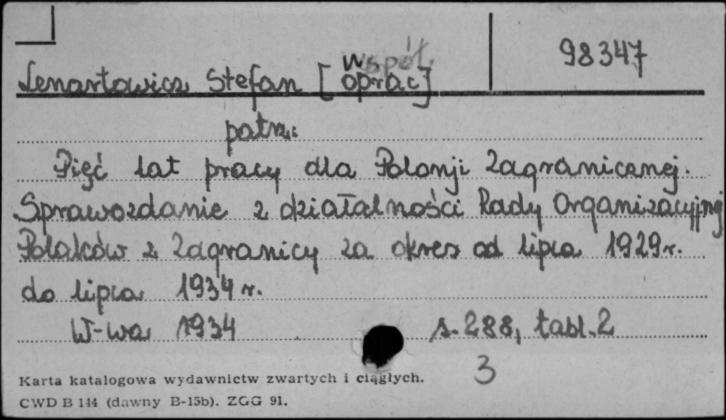 98347
Lenartowicz Stefan [współ. oprac]
patrz:
Pięć lat pracy dla Polonji Zagranicznej.
Sprawozdanie z działalności Rady Organizacyjnej
Polaków z Zagranicy za okres od lipca 1929 r.
do lipca 1934 r.
W-wa 1934 s. 288, tabl. 2
3
Karta katalogowa wydawnictw zwartych i ciągłych.
CWD B 144 (dawny B-15b). ZGG 91.